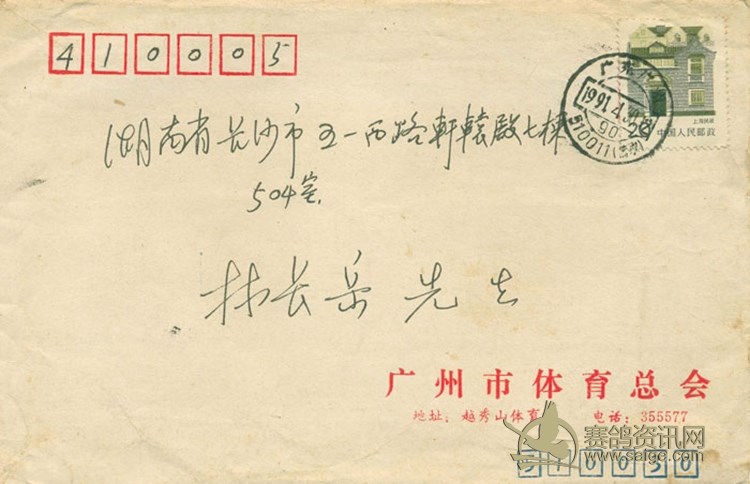 410005
上海民居
20 中国人民邮政
广东
1991.4.30
510011
湖南省长沙市五一西路轩辕殿七栋
504室
林长岳 先生
广州市体育总会
地址：越秀山体育 电话：355577
赛鸽资讯网
www.saige.com
510030